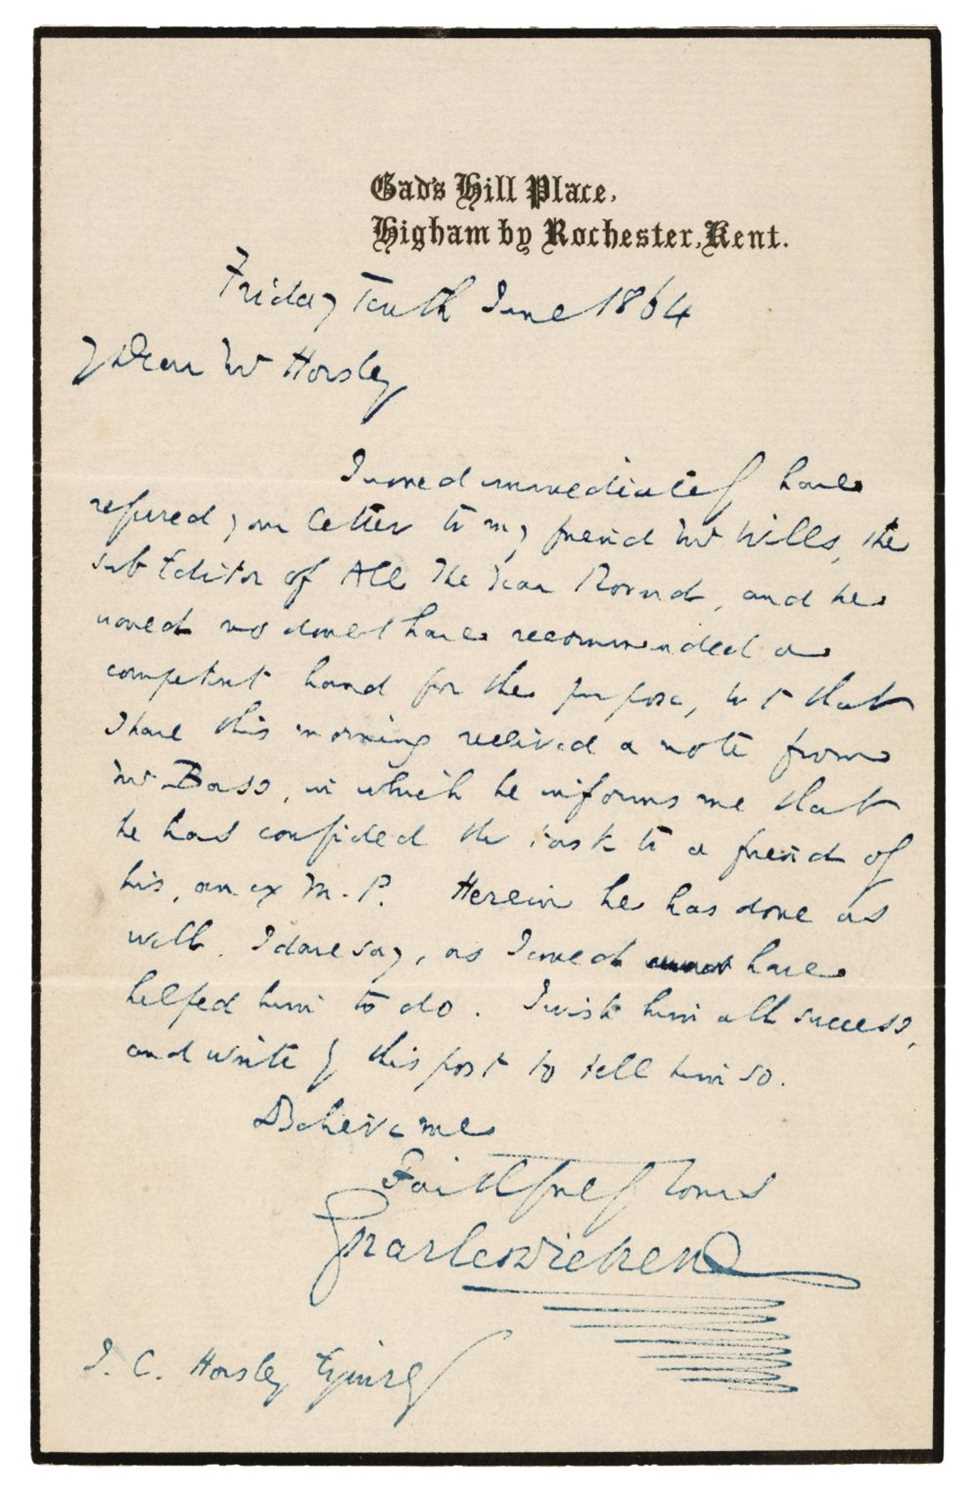 Gad's Hill Place,
Higham by Rochester, Kent.
Friday Tenth June 1864
My Dear Mr Horsley
I would immediately have
referred your letter to my friend Mr Wills, the
sub Editor of All The Year Round, and he
would no doubt have recommended a
competent hand for the purpose, but that
I have this morning received a note from
Mr Bass, in which he informs me that
he has confided the task to a friend of
his, an ex M.P. Herein he has done as
well, I dare say, as I could have
helped him to do. I wish him all success,
and write by this post to tell him so.
Believe me
Faithfully Yours
Charles Dickens
J. C. Horsley Esquire